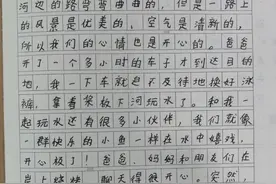 河边的路弯弯曲曲的，但是一路上
的风景是优美的，空气是清新的，
所以我们的心情也是开心的。爸爸
开了一个多小时的车子才到达目的
地，我一下车就迫不及待地换好泳
裤，拿着桨板下河玩水了。和我一
起玩水还有很多小伙伴，我们就像
一群快乐的小鱼一样在水中嬉戏，
开心极了！爸爸、妈妈和朋友们在
岸上烧烤，聊天得很开心。突然，